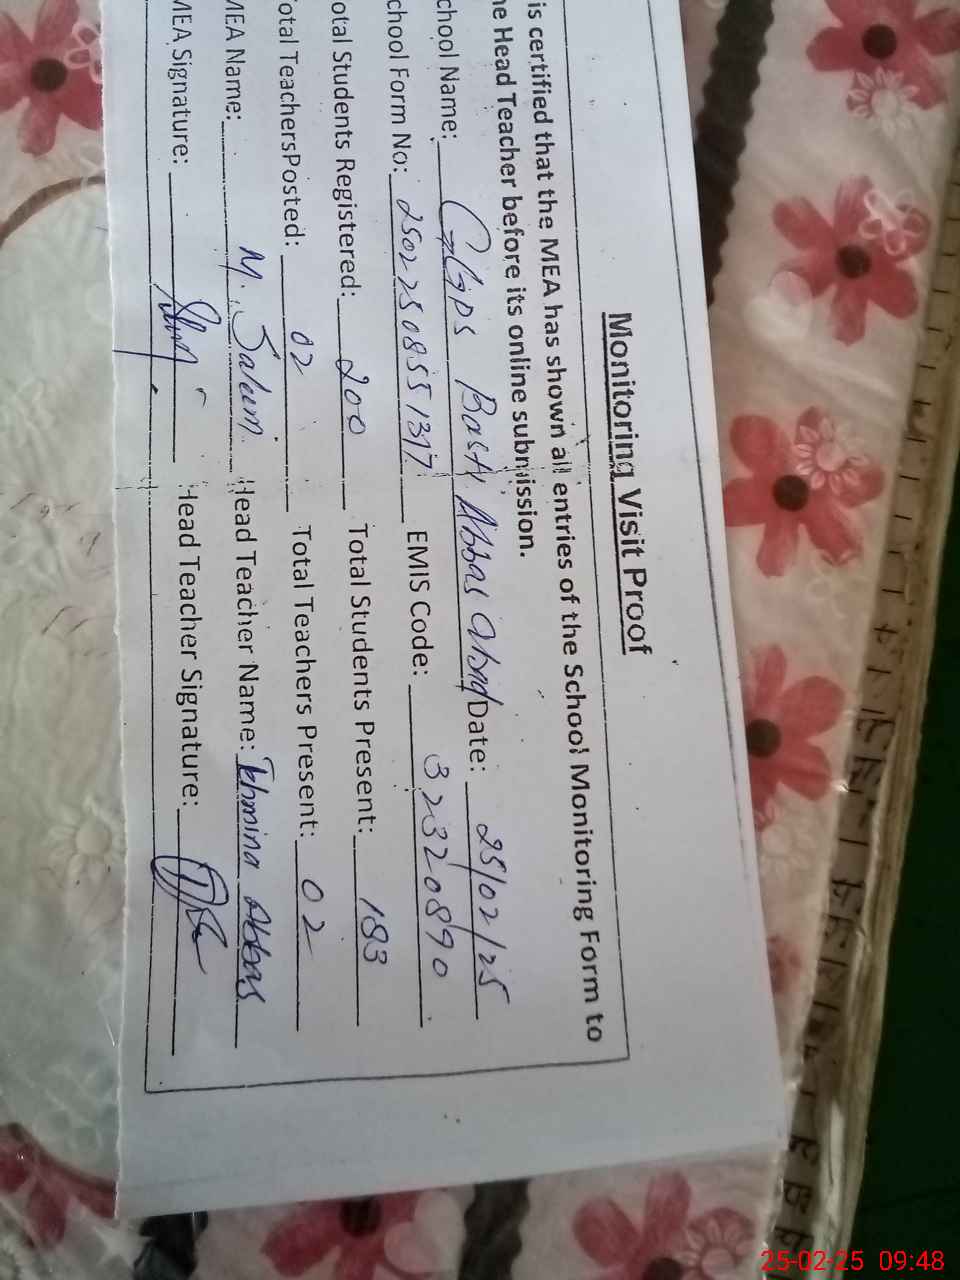 Monitoring Visit Proof
is certified that the MEA has shown all entries of the School Monitoring Form to
he Head Teacher before its online submission.
chool Name: GGPS Basti Abbas Abad Date: 25/02/25
chool Form No: 25022508551317 EMIS Code: 32320890
otal Students Registered: 200 Total Students Present: 183
otal TeachersPosted: 02 Total Teachers Present: 02
MEA Name: M. Saleem Head Teacher Name: Tehmina Abbas
MEA Signature: Head Teacher Signature:
25-02-25 09:48